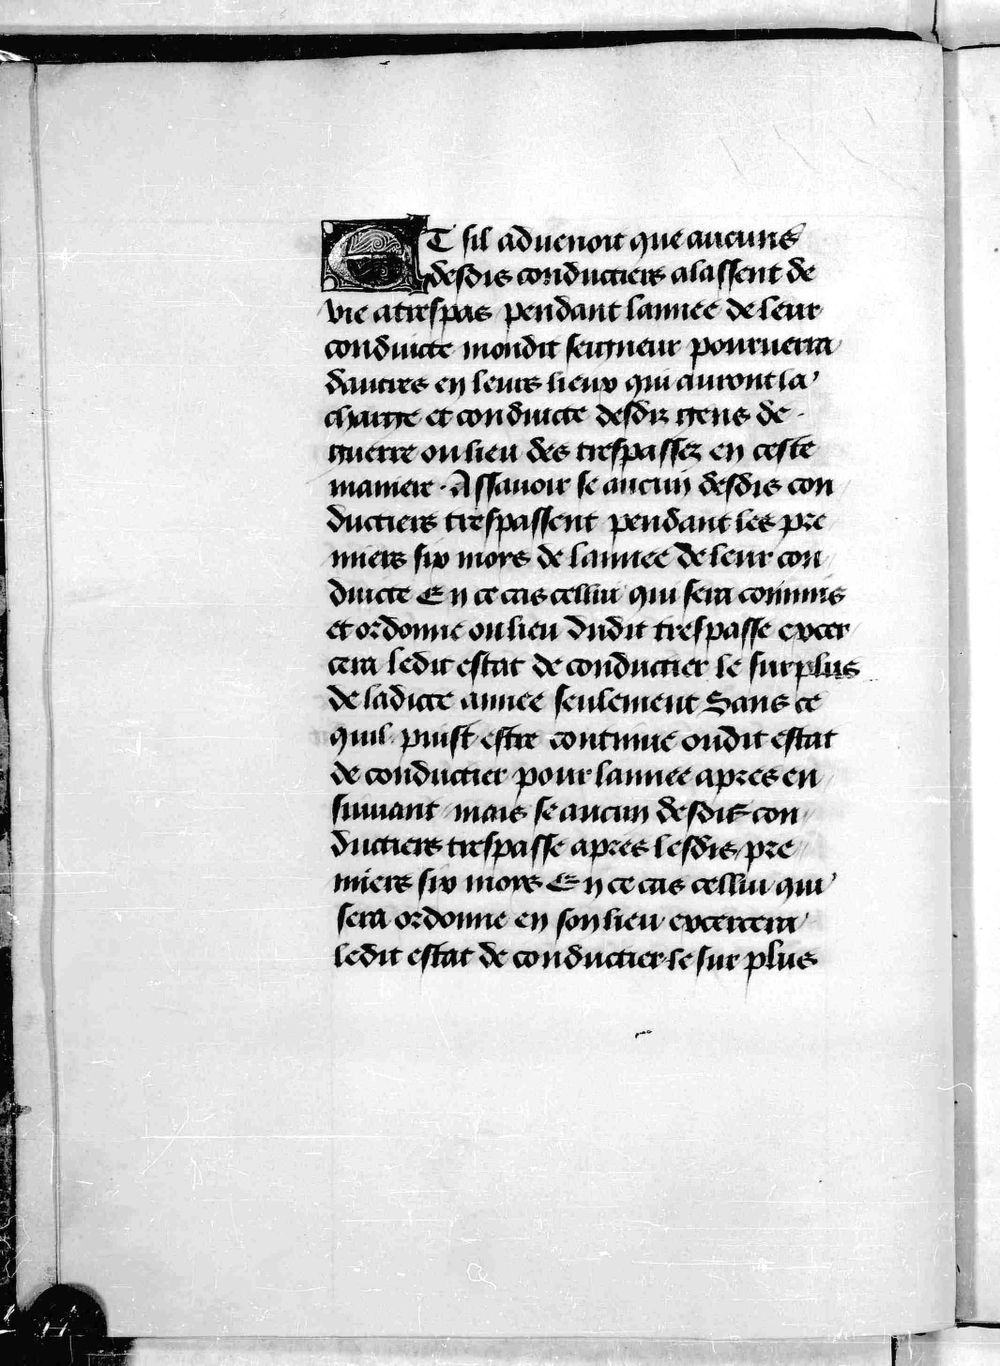 ET sil aduenoit que aucuns
desdis conductiers alassent de
vie a trespas pendant lannee de leur
conduicte mondit seigneur pouruerra
dautres en leurs lieux qui auront la
charge et conduicte desdiz gens de
guerre ou lieu des trespassez en ceste
maniere. Assauoir se aucun desdis con
ductiers trespassent pendant les pre
miers six moys de lannee de leur con
duicte En ce cas cellui qui sera commis
et ordonne ou lieu dudit trespasse excer
cera ledit estat de conductier le surplus
de ladicte annee seulement Sans ce
quil puist estre continue oudit estat
de conductier pour lannee apres en
suiuant mais se aucun desdis con
ductiers trespasse apres lesdis pre
miers six moys En ce cas cellui qui
sera ordonne en son lieu excercera
ledit estat de conductier le sur plus